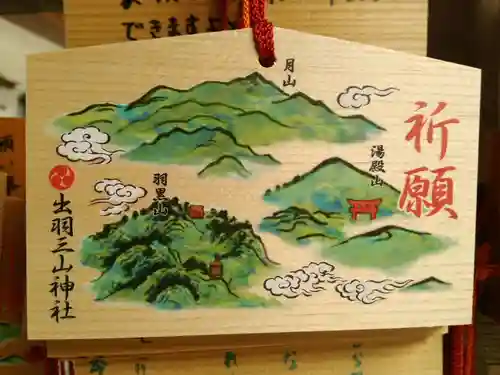 できますよ
月山
祈願
湯殿山
羽黒山
出羽三山神社